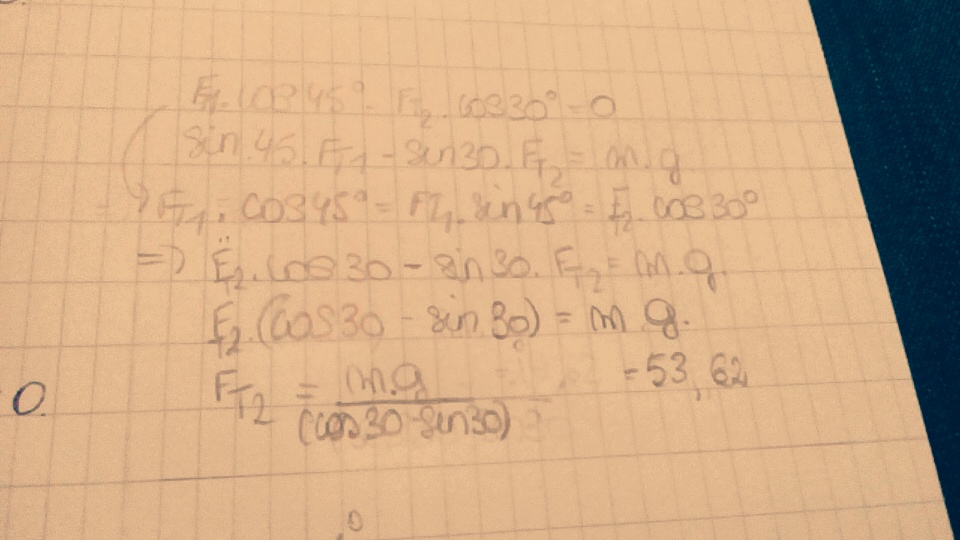 F₁.cos 45° - F_T₂.cos30° = 0
sin.45.F_T1 - sin30.F_T₂ = m.g
F_T₁.cos45° = F_T₁.sin45° = F_T₂.cos30°
=) F_T₂.cos30 - sin30.F_T₂ = m.g.
F_T₂.(cos30 - sin30) = m g.
F_T2 = m.g / (cos30-sin30) = 53,62
0
0